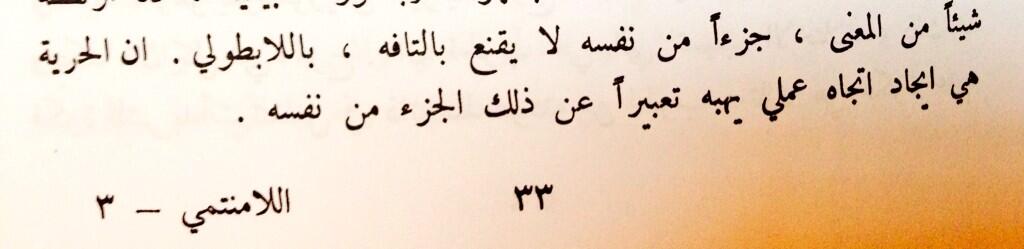 شيئاً من المعنى ، جزءاً من نفسه لا يقنع بالتافه ، باللابطولي . ان الحرية
هي ايجاد اتجاه عملي يهبه تعبيراً عن ذلك الجزء من نفسه .
٣٣
اللامنتمي – ٣